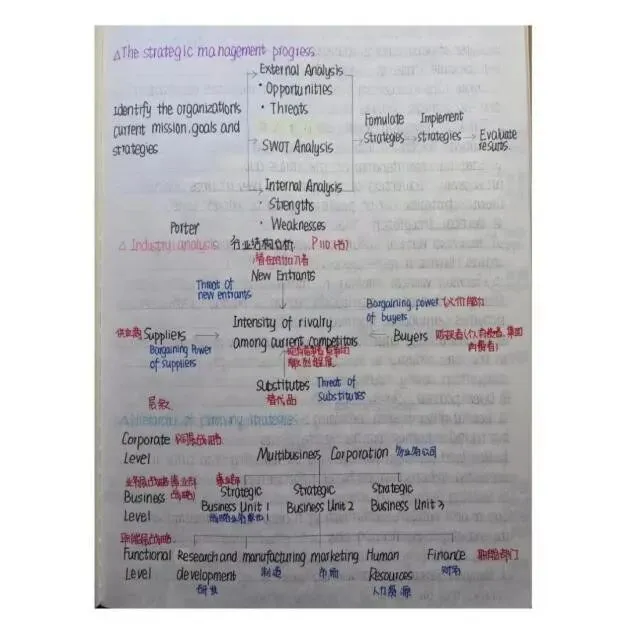 △The strategic management progress
External Analysis
· Opportunities
· Threats
Identify the organizations
current mission, goals and
strategies
SWOT Analysis
Fomulate
strategies
Implement
strategies
Evaluate
results.
Internal Analysis
· Strengths
· Weaknesses
Porter
△ Industry analysis 行业结构分析 P110 (书)
潜在的加入者
New Entrants
Threat of
new entrants
Bargaining power 议价能力
of buyers
供应商 Suppliers
Bargaining Power
of suppliers
Intensity of rivalry
among current competitors
Buyers 购买者(个人消费者, 集团
消费者)
Substitutes
替代品
Threat of
Substitutes
层次
△Hierarchy of planning strategies
Corporate 公司层战略
Level
Multibusiness Corporation 多业务公司
事业部
Business 战略)
Level
事业部
Strategic
Business Unit 1
Strategic
Business Unit 2
Strategic
Business Unit 3
职能层战略
Functional
Level
Research and
development
研发
manufacturing
制造
marketing
市场
Human
Resources
人力资源
Finance
财务
职能部门